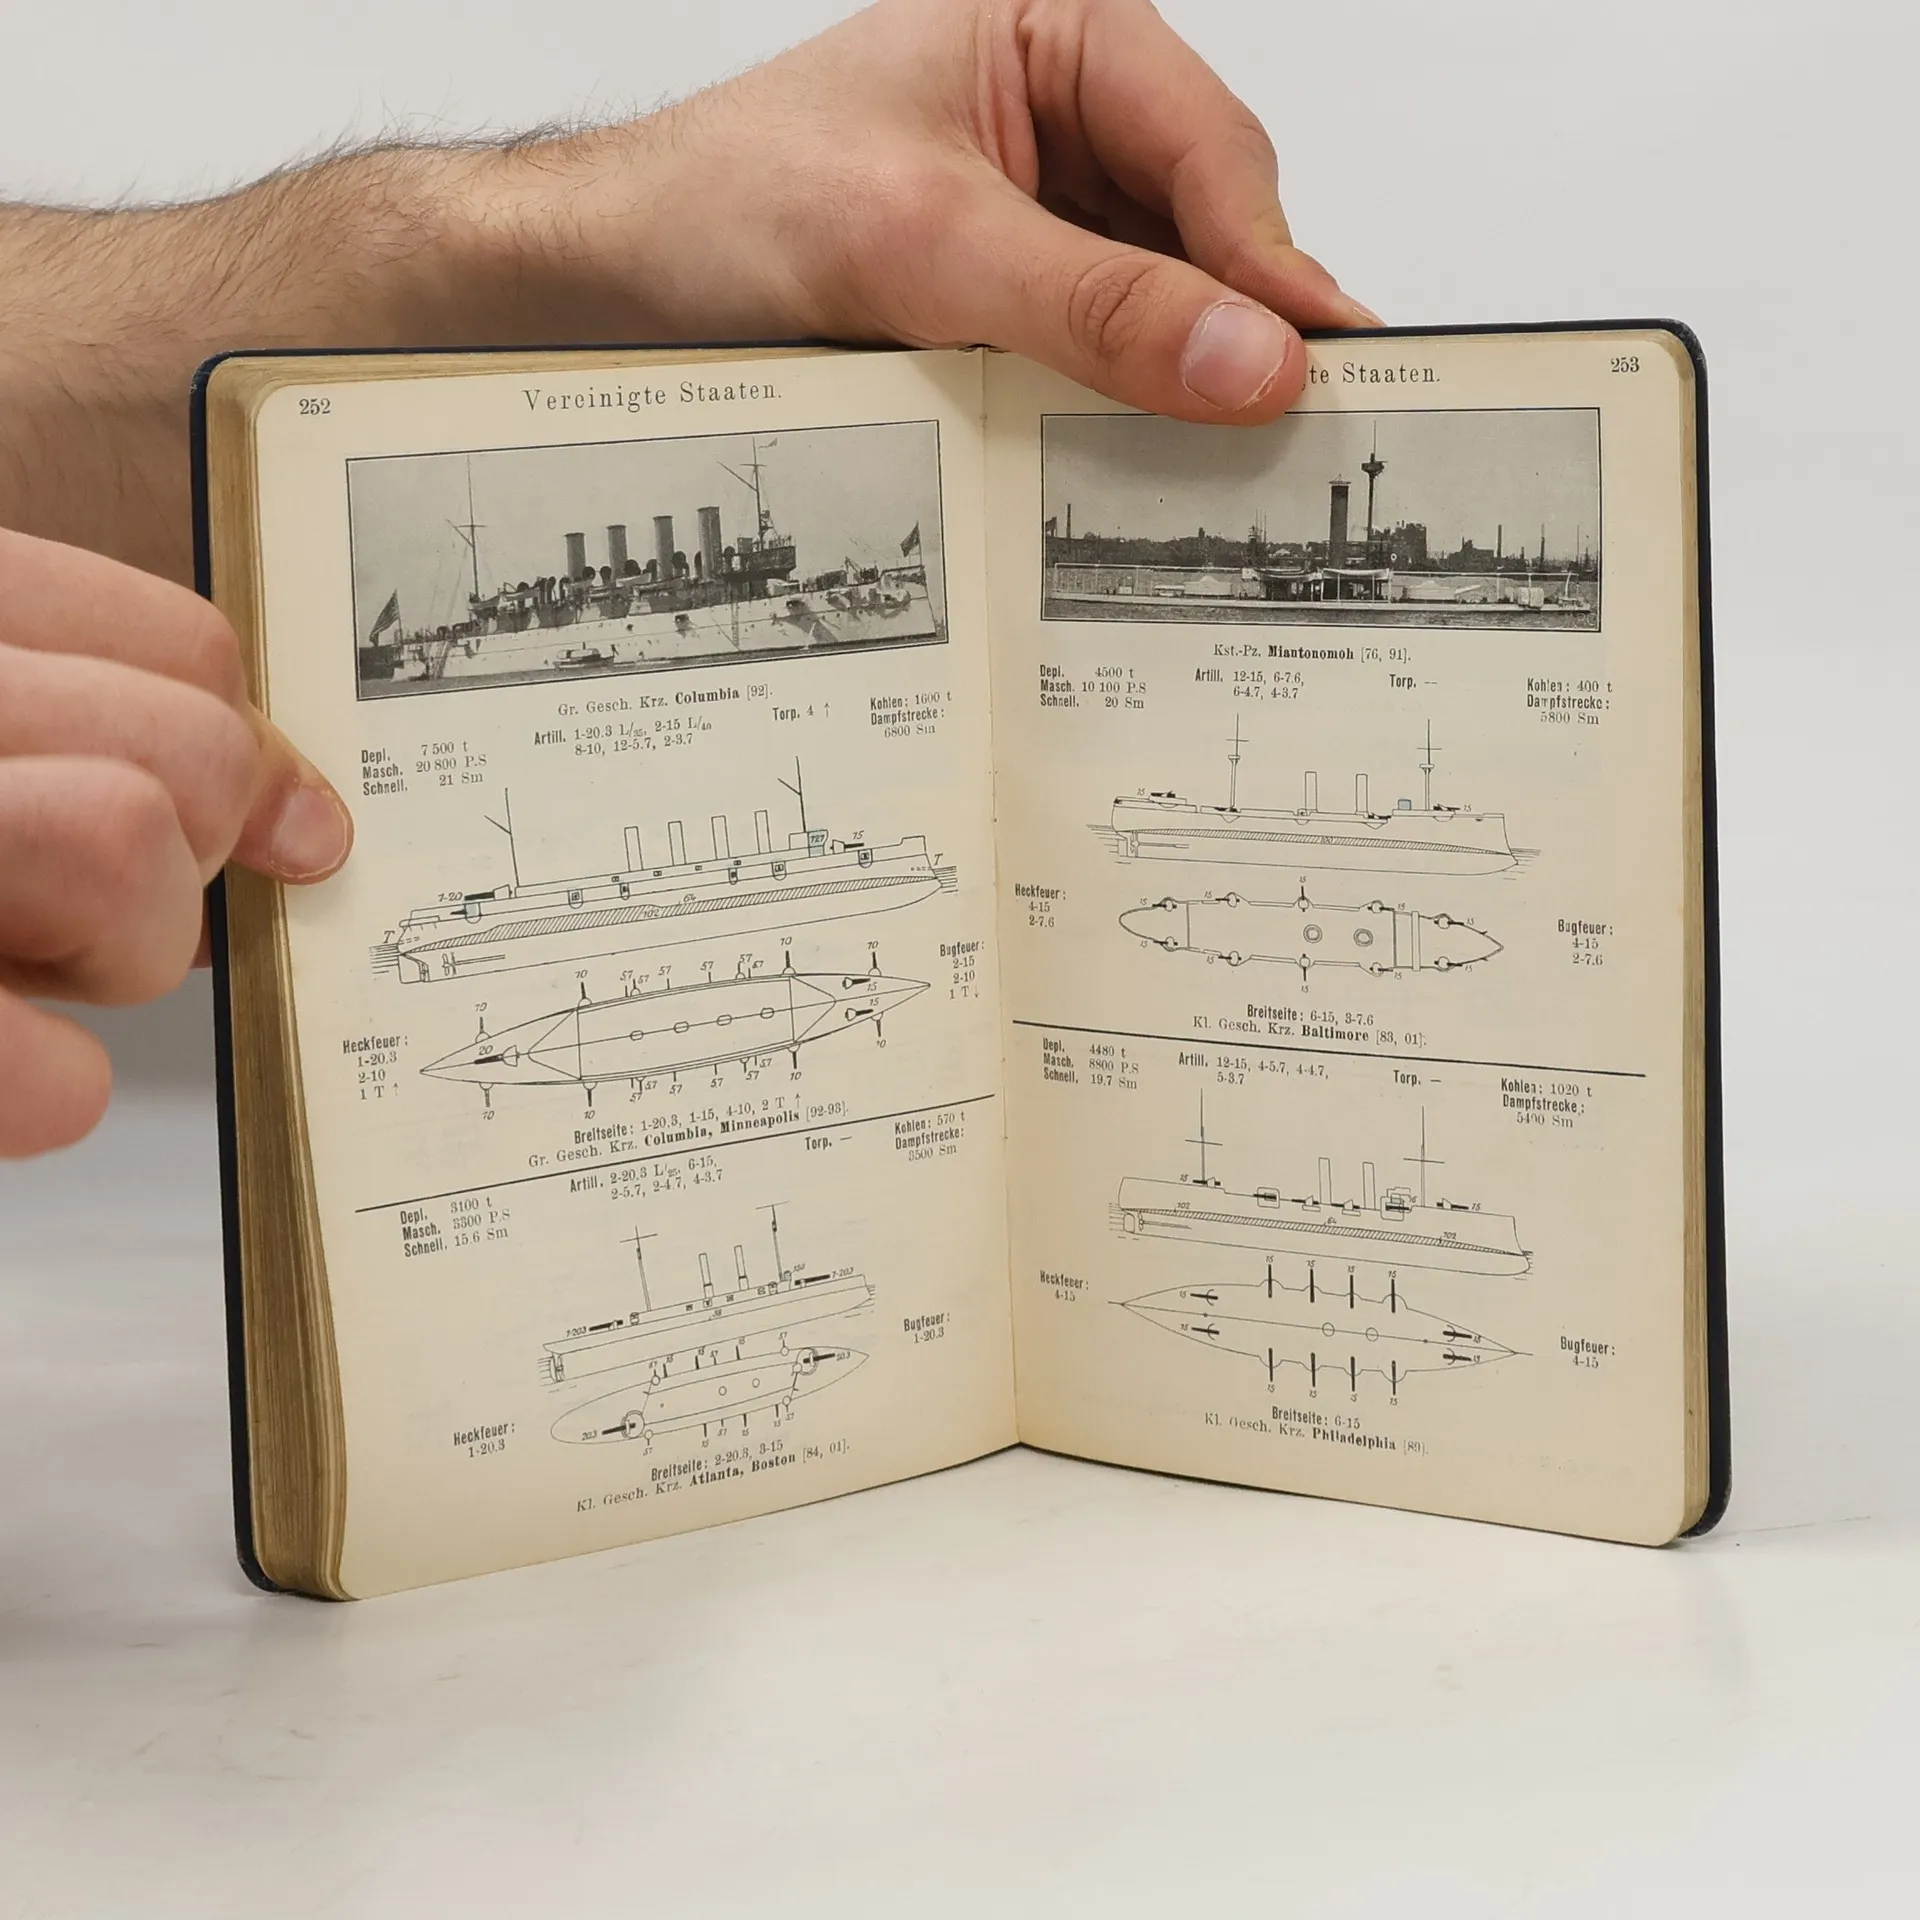 252
Vereinigte Staaten.
Gr. Gesch. Krz. Columbia [92].
Depl. 7 500 t
Masch. 20 800 P.S
Schnell. 21 Sm
Artill. 1-20.3 L/35, 2-15 L/40
8-10, 12-5.7, 2-3.7
Torp. 4 ↑
Kohlen: 1600 t
Dampfstrecke:
6800 Sm
127
15
7-20
T
T
64
102
Heckfeuer:
1-20.3
2-10
1 T ↑
Bugfeuer:
2-15
2-10
1 T ↓
10 10 57 57 57 57 57 57 10 10
20 15 15
10 10 57 57 57 57 57 57 10 10
Breitseite: 1-20.3, 1-15, 4-10, 2 T ↑
Gr. Gesch. Krz. Columbia, Minneapolis [92-93].
Depl. 3100 t
Masch. 3300 P.S
Schnell. 15.6 Sm
Artill. 2-20.3 L/25, 6-15,
2-5.7, 2-4.7, 4-3.7
Torp. —
Kohlen: 570 t
Dampfstrecke:
3500 Sm
7-203
7-203
38
Heckfeuer:
1-20.3
Bugfeuer:
1-20.3
57 15 15 57 15 57
203
203
57 15 57 15 15 57
Breitseite: 2-20.3, 3-15
Kl. Gesch. Krz. Atlanta, Boston [84, 01].
te Staaten.
253
Kst.-Pz. Miantonomoh [76, 91].
Depl. 4500 t
Masch. 10 100 P.S
Schnell. 20 Sm
Artill. 12-15, 6-7.6,
6-4.7, 4-3.7
Torp. —
Kohlen: 400 t
Dampfstrecke:
5800 Sm
15
15
Heckfeuer:
4-15
2-7.6
Bugfeuer:
4-15
2-7.6
15 15 15 15 15
15 15 15 15 15
Breitseite: 6-15, 3-7.6
Kl. Gesch. Krz. Baltimore [83, 01].
Depl. 4480 t
Masch. 8800 P.S
Schnell. 19.7 Sm
Artill. 12-15, 4-5.7, 4-4.7,
5-3.7
Torp. —
Kohlen: 1020 t
Dampfstrecke:
5400 Sm
15
15
102
64
102
Heckfeuer:
4-15
Bugfeuer:
4-15
15 15 15 15 15 15
15 15 15 15 15 15
Breitseite: 6-15
Kl. Gesch. Krz. Philadelphia [89].